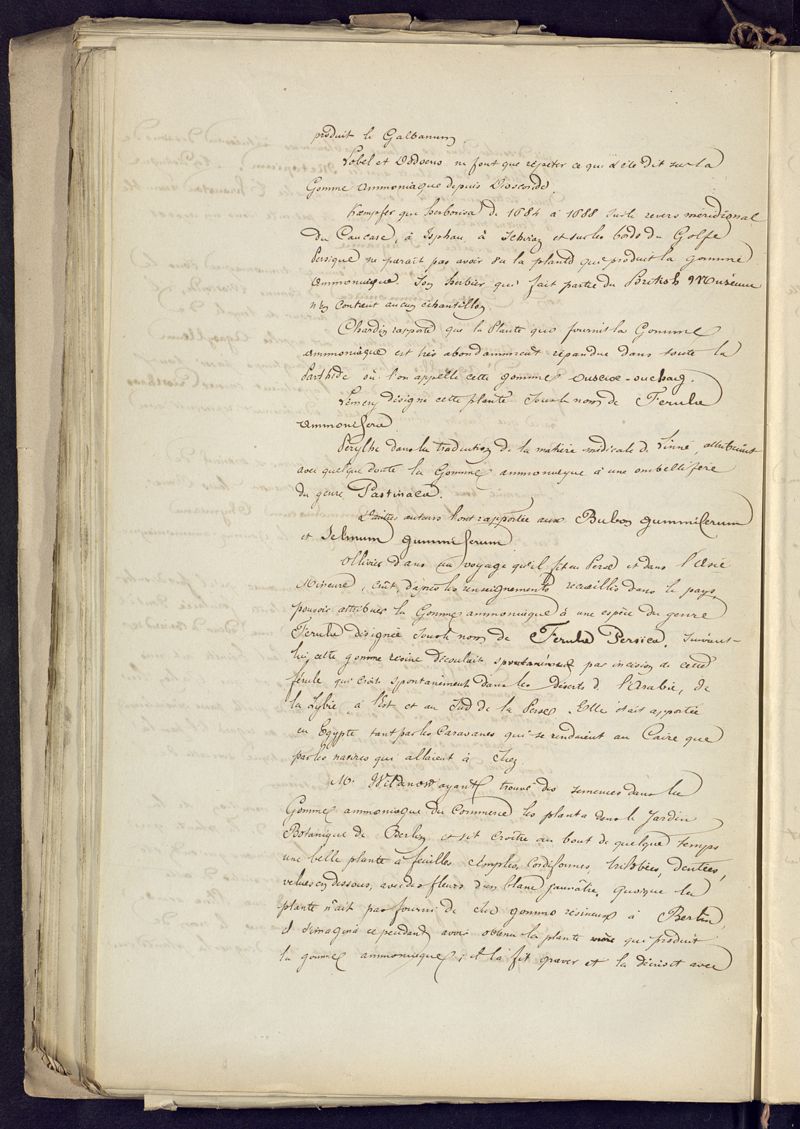 produit le Galbanum
Lobel et Dodoens ne font que répéter ce qui a été dit sur la
Gomme ammoniaque depuis Dioscoride.
Kœmpfer qui herborisa de 1684 à 1688 sur le revers méridional
du Caucase, à Isphan, à Schiraz et sur les bords du Golfe
Persique ne parait pas avoir vu la plante qui produit la gomme
ammoniaque. Son herbier qui fait partie du British Muséum
n'en contient aucun échantillon
Chardin rapporte que la Plante qui fournit la Gomme
ammoniaque est très abondamment répandue dans toute la
Parthide où l'on appelle cette gomme ouscioc-oucharg.
Lemery désigne cette plante sous le nom de Ferula
ammonifera.
Perylhe dans la traduction de la matière médicale de Linné, attribuait
avec quelque doute la Gomme ammoniaque à une ombellifère
du genre Pastinaca.
D'autres auteurs l'ont rapportée aux Bubon gummiferum
et Selinum gummiferum.
Ollivier dans un voyage qu'il fit en Perse et dans l'Asie
Mineure, crût, d'après les renseignements recueillis dans le pays,
pouvoir attribuer la Gomme ammoniaque à une espèce du genre
Ferula désignée sous le nom de Ferula Persica. Suivant
lui, cette gomme résine découlait spontanément par incision de cette
férule qui croit spontanément dans les déserts de l'Arabie, de
la Lybie, à l'est et au Sud de la Perse. Elle était apportée
en Egypte tant par les Caravanes qui se rendaient au Caire que
par les navires qui allaient à
Mr. Wildnow ayant trouvé des semences dans la
Gomme ammoniaque du Commerce les planta dans le Jardin
Botanique de Berlin et vit croître au bout de quelque temps
une belle plante à feuilles amples, cordiformes, trilobées, dentées,
velues en dessous, avec des fleurs d'un blanc jaunâtre. quoique la
plante n'ait pas fourni de suc gommo résineux à Berlin,
il s'imagina cependant avoir obtenu la plante même qui produit
la gomme ammoniaque; il la fit graver et la décrivit avec